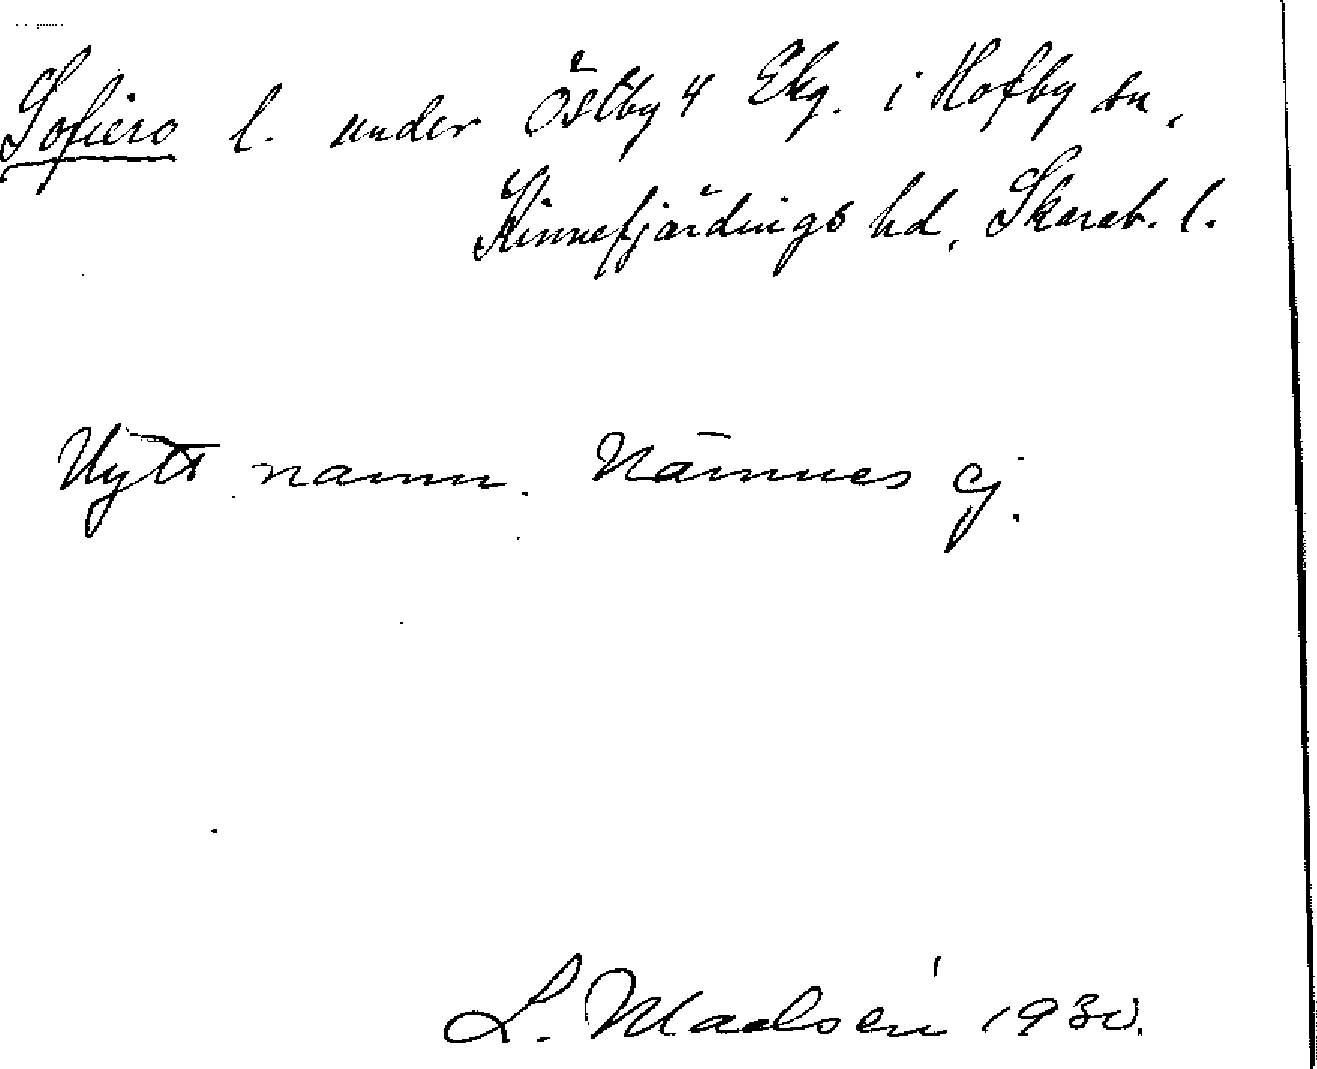 Sofiero l. under Östby 4 Ekg. i Hofby sn,
Kinnefjärdings hd, Skarab. l.
Nytt namn. Nämnes ej.
L. 1930.